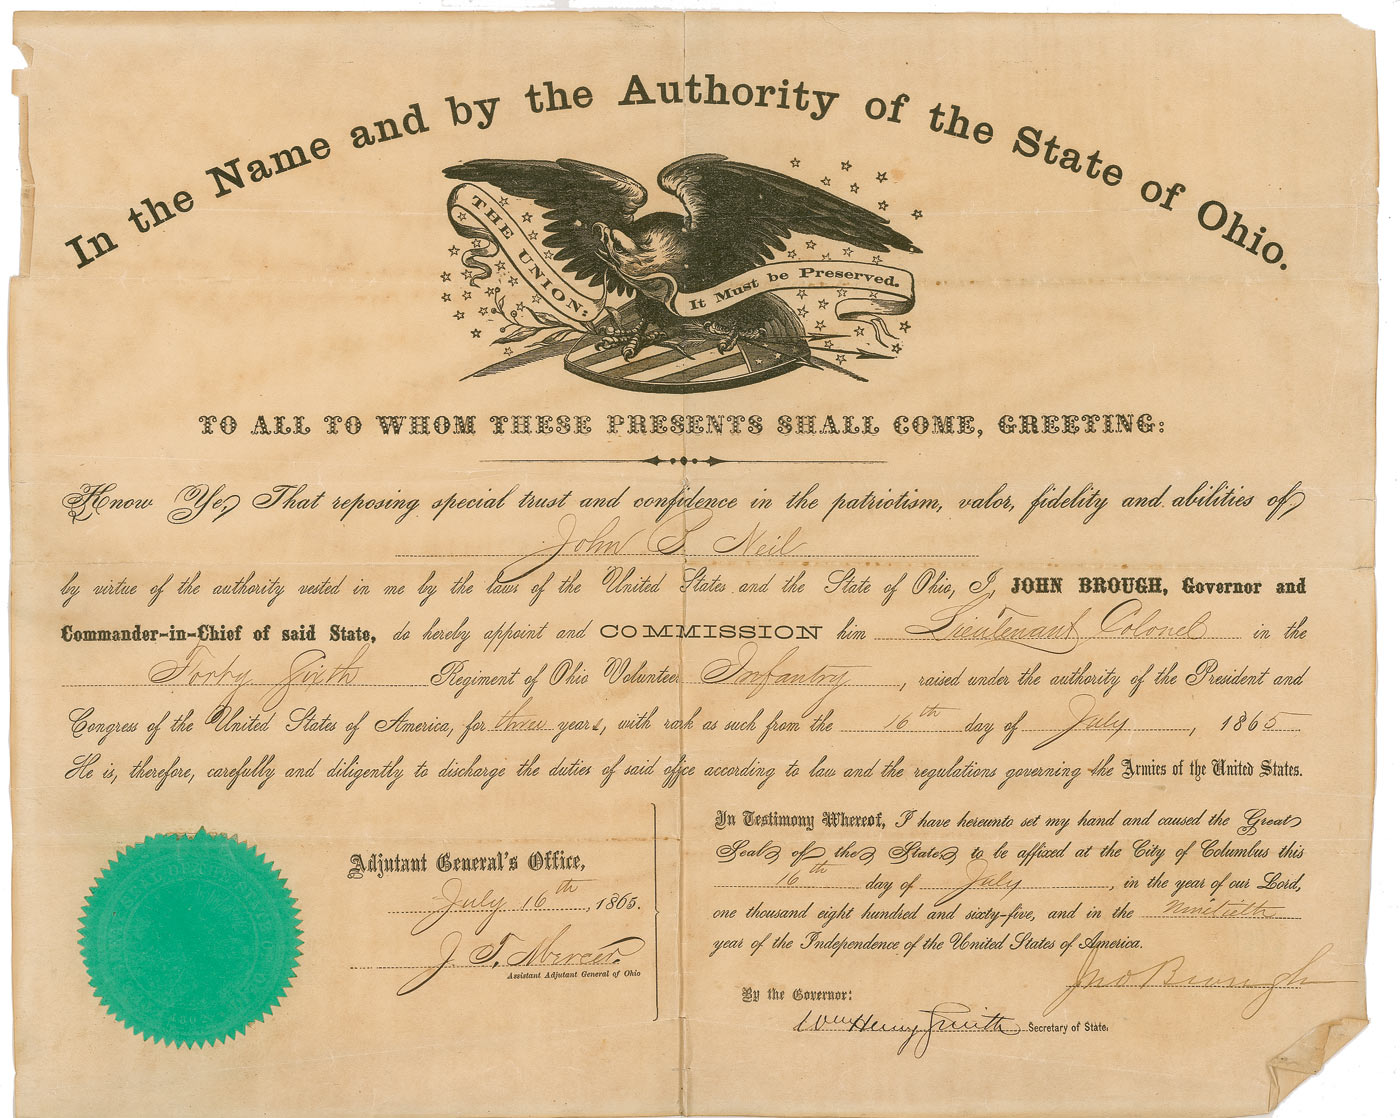 In the Name and by the Authority of the State of Ohio.
THE UNION:
It Must be Preserved.
TO ALL TO WHOM THESE PRESENTS SHALL COME, GREETING:
Know Ye, That reposing special trust and confidence in the patriotism, valor, fidelity and abilities of
John S Neil
by virtue of the authority vested in me by the laws of the United States and the State of Ohio, I, JOHN BROUGH, Governor and
Commander-in-Chief of said State, do hereby appoint and COMMISSION him Lieutenant Colonel in the
Forty Sixth Regiment of Ohio Volunteer Infantry, raised under the authority of the President and
Congress of the United States of America, for three years, with rank as such from the 16th day of July, 1865
He is, therefore, carefully and diligently to discharge the duties of said office according to law and the regulations governing the Armies of the United States.
Adjutant General's Office,
July 16th, 1865.
J. T. Mercer
Assistant Adjutant General of Ohio
In Testimony Whereof, I have hereunto set my hand and caused the Great
Seal of the State to be affixed at the City of Columbus this
16th day of July, in the year of our Lord,
one thousand eight hundred and sixty-five, and in the Ninetieth
year of the Independence of the United States of America.
Jno Brough
By the Governor:
Wm Henry Smith Secretary of State.